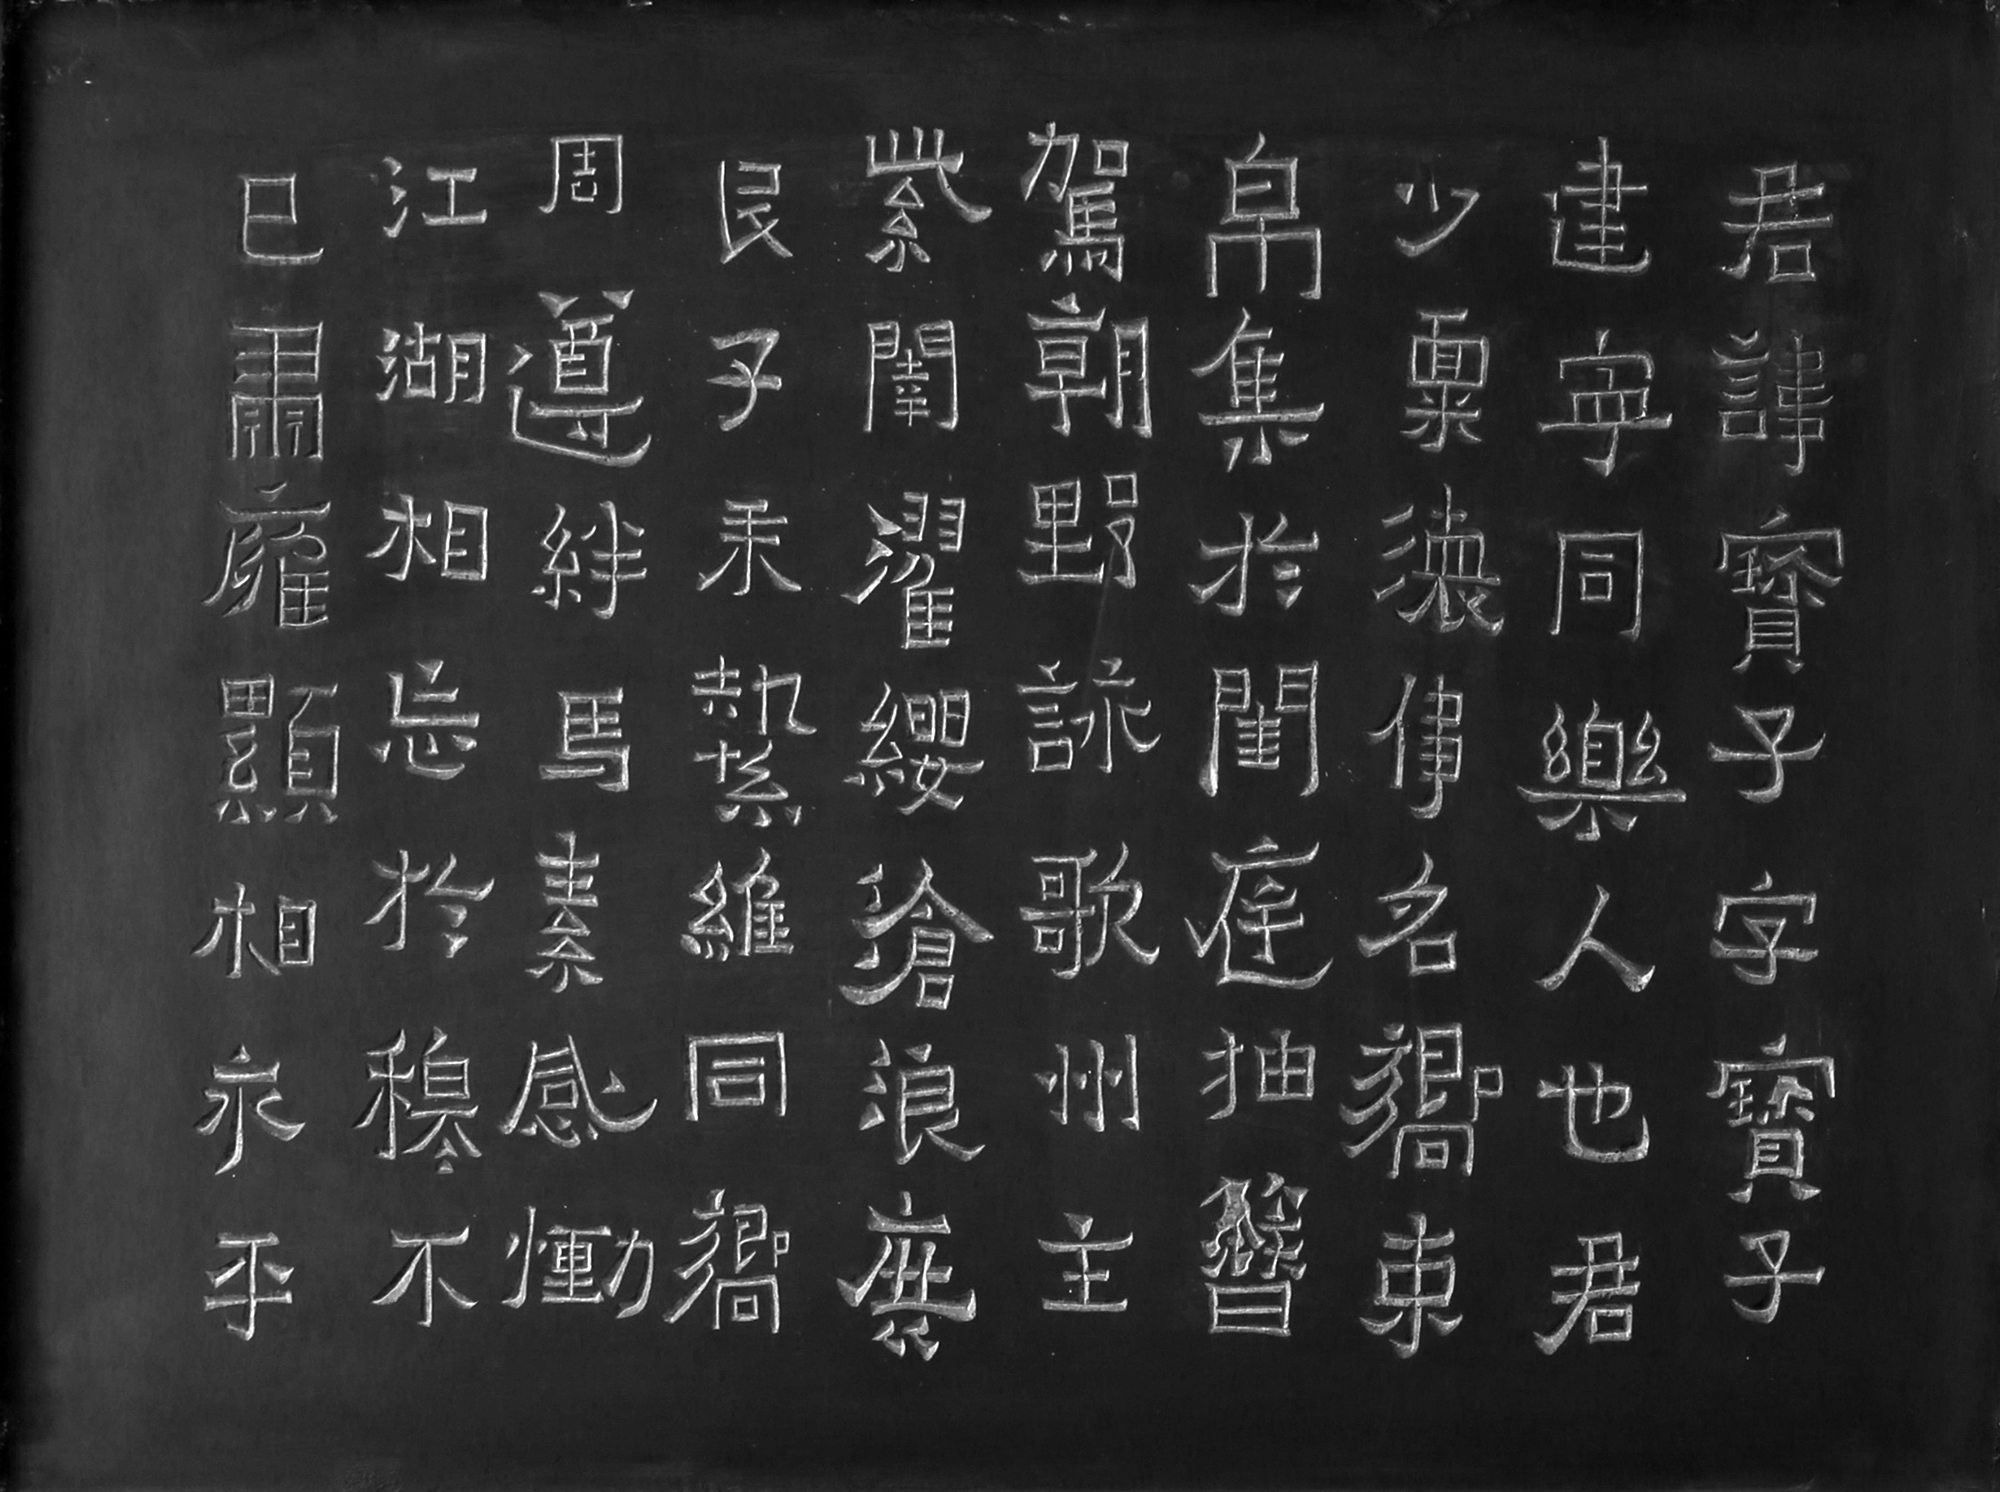 君諱寶子字寶子
建寧同樂人也君
少稟瓌偉名嚮束
帛集於閨庭抽簪
駕朝野詠歌州主
紫闥濯纓滄浪庶
民子来縶維同嚮
周遵絆馬素感慟
江湖相忘於穆不
已肅雍顯相永平